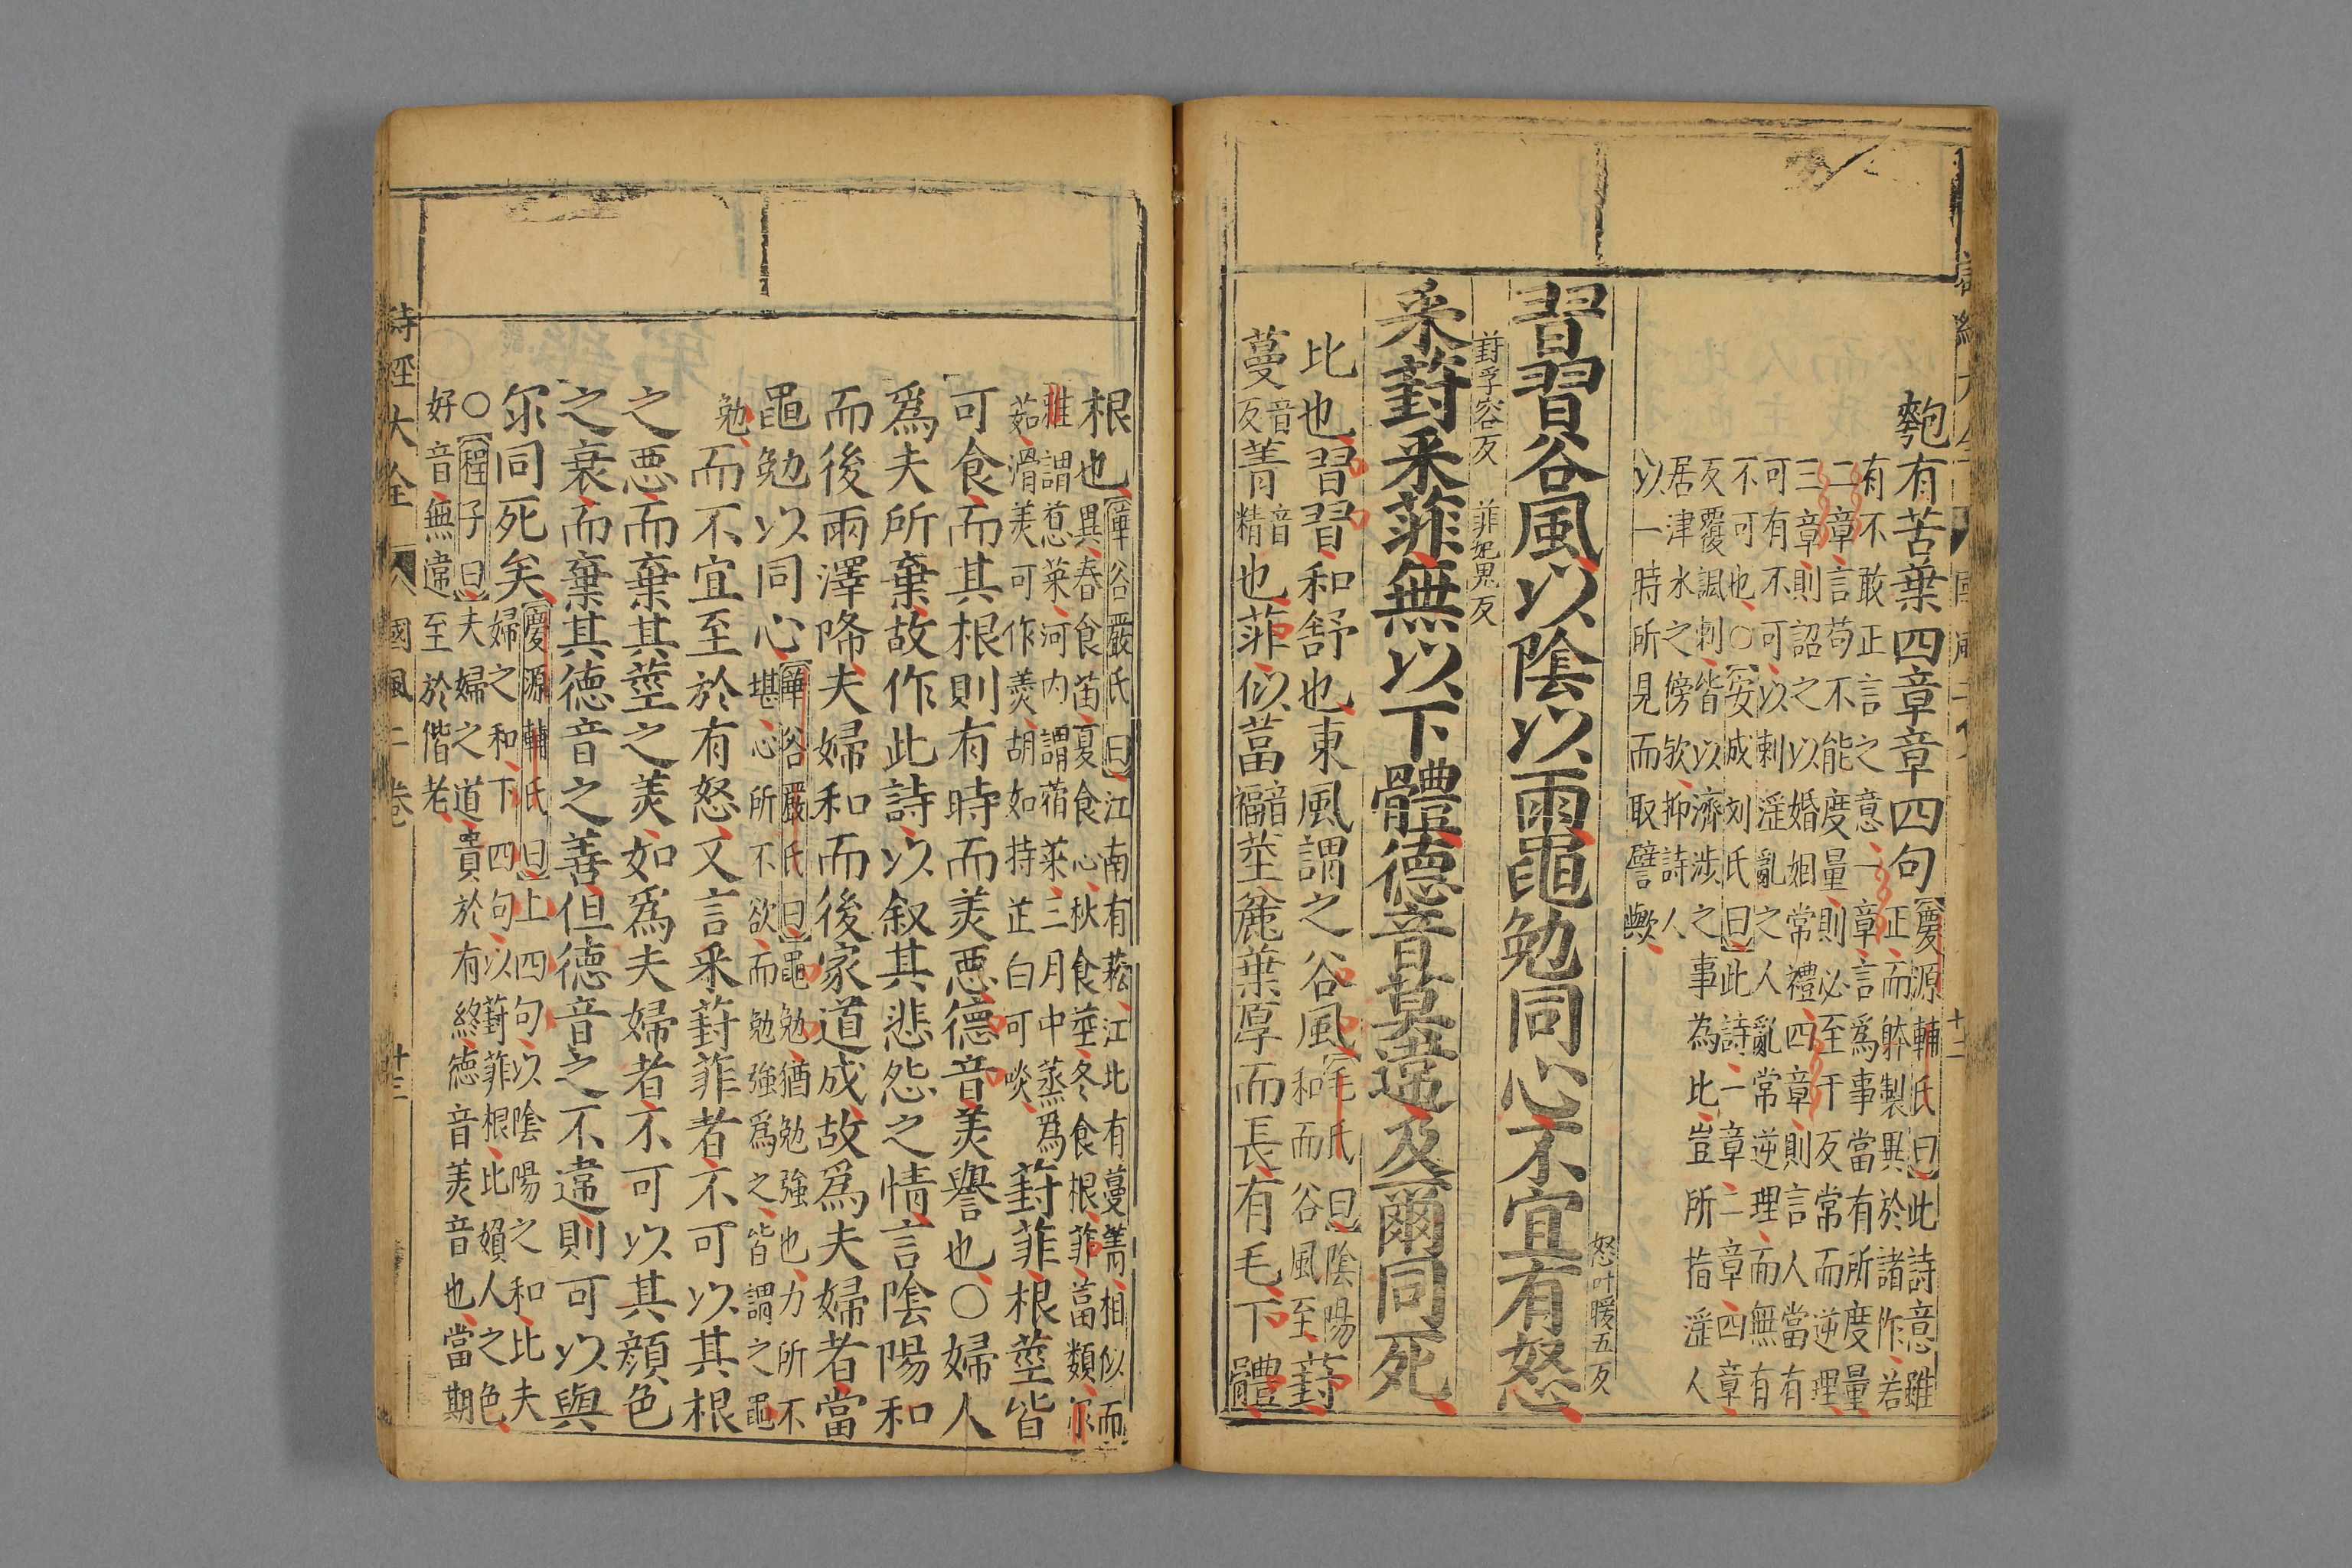 匏有苦葉四章章四句
慶源輔氏曰此詩意雖
正而躰製異於諸作若
有不敢正言之意一章言爲事當有所度量
二章言苟不能度量則必至干反常而逆理
三章則詔之以婚姻常禮四章則言人當有
可有不可以刺淫亂之人亂常逆理而無有
不可也○安成刘氏曰此詩一章二章四章
反覆諷刺皆以濟涉之事為比豈所指淫人
居津水之傍欤抑詩人
以一時所見而取譬歟
怒叶暖五反
習習谷風以隂以雨黽勉同心不宜有怒
葑孚容反 菲妃鬼反
采葑采菲無以下體德音莫違及爾同死
比也習習和舒也東風謂之谷風毛氏曰隂陽和而谷風至葑
蔓音反菁音精也菲似葍音福莖麄葉厚而長有毛下體
詩經大全 國風二卷 十三
根也華谷嚴氏曰江南有菘江北有蔓菁相似而
異春食苗夏食心秋食莖冬食根菲葍類尓
雅謂蒠菜河内謂蓿菜三月中蒸爲
茹滑美可作羹胡如持芷白可啖
葑菲根莖皆
可食而其根則有時而美惡德音美譽也○婦人
爲夫所棄故作此詩以叙其悲怨之情言隂陽和
而後雨澤降夫婦和而後家道成故爲夫婦者當
黽勉以同心華谷嚴氏曰黽勉猶勉強也力所不
堪心所不欲而勉強爲之皆謂之黽
勉而不宜至於有怒又言采葑菲者不可以其根
之惡而棄其莖之美如爲夫婦者不可以其顔色
之衰而棄其德音之善但德音之不違則可以與
尔同死矣慶源輔氏曰上四句以陰陽之和比夫
婦之和下四句以葑菲根比媍人之色
○程子曰夫婦之道貴於有終德音美音也當期
好音無違至於偕老